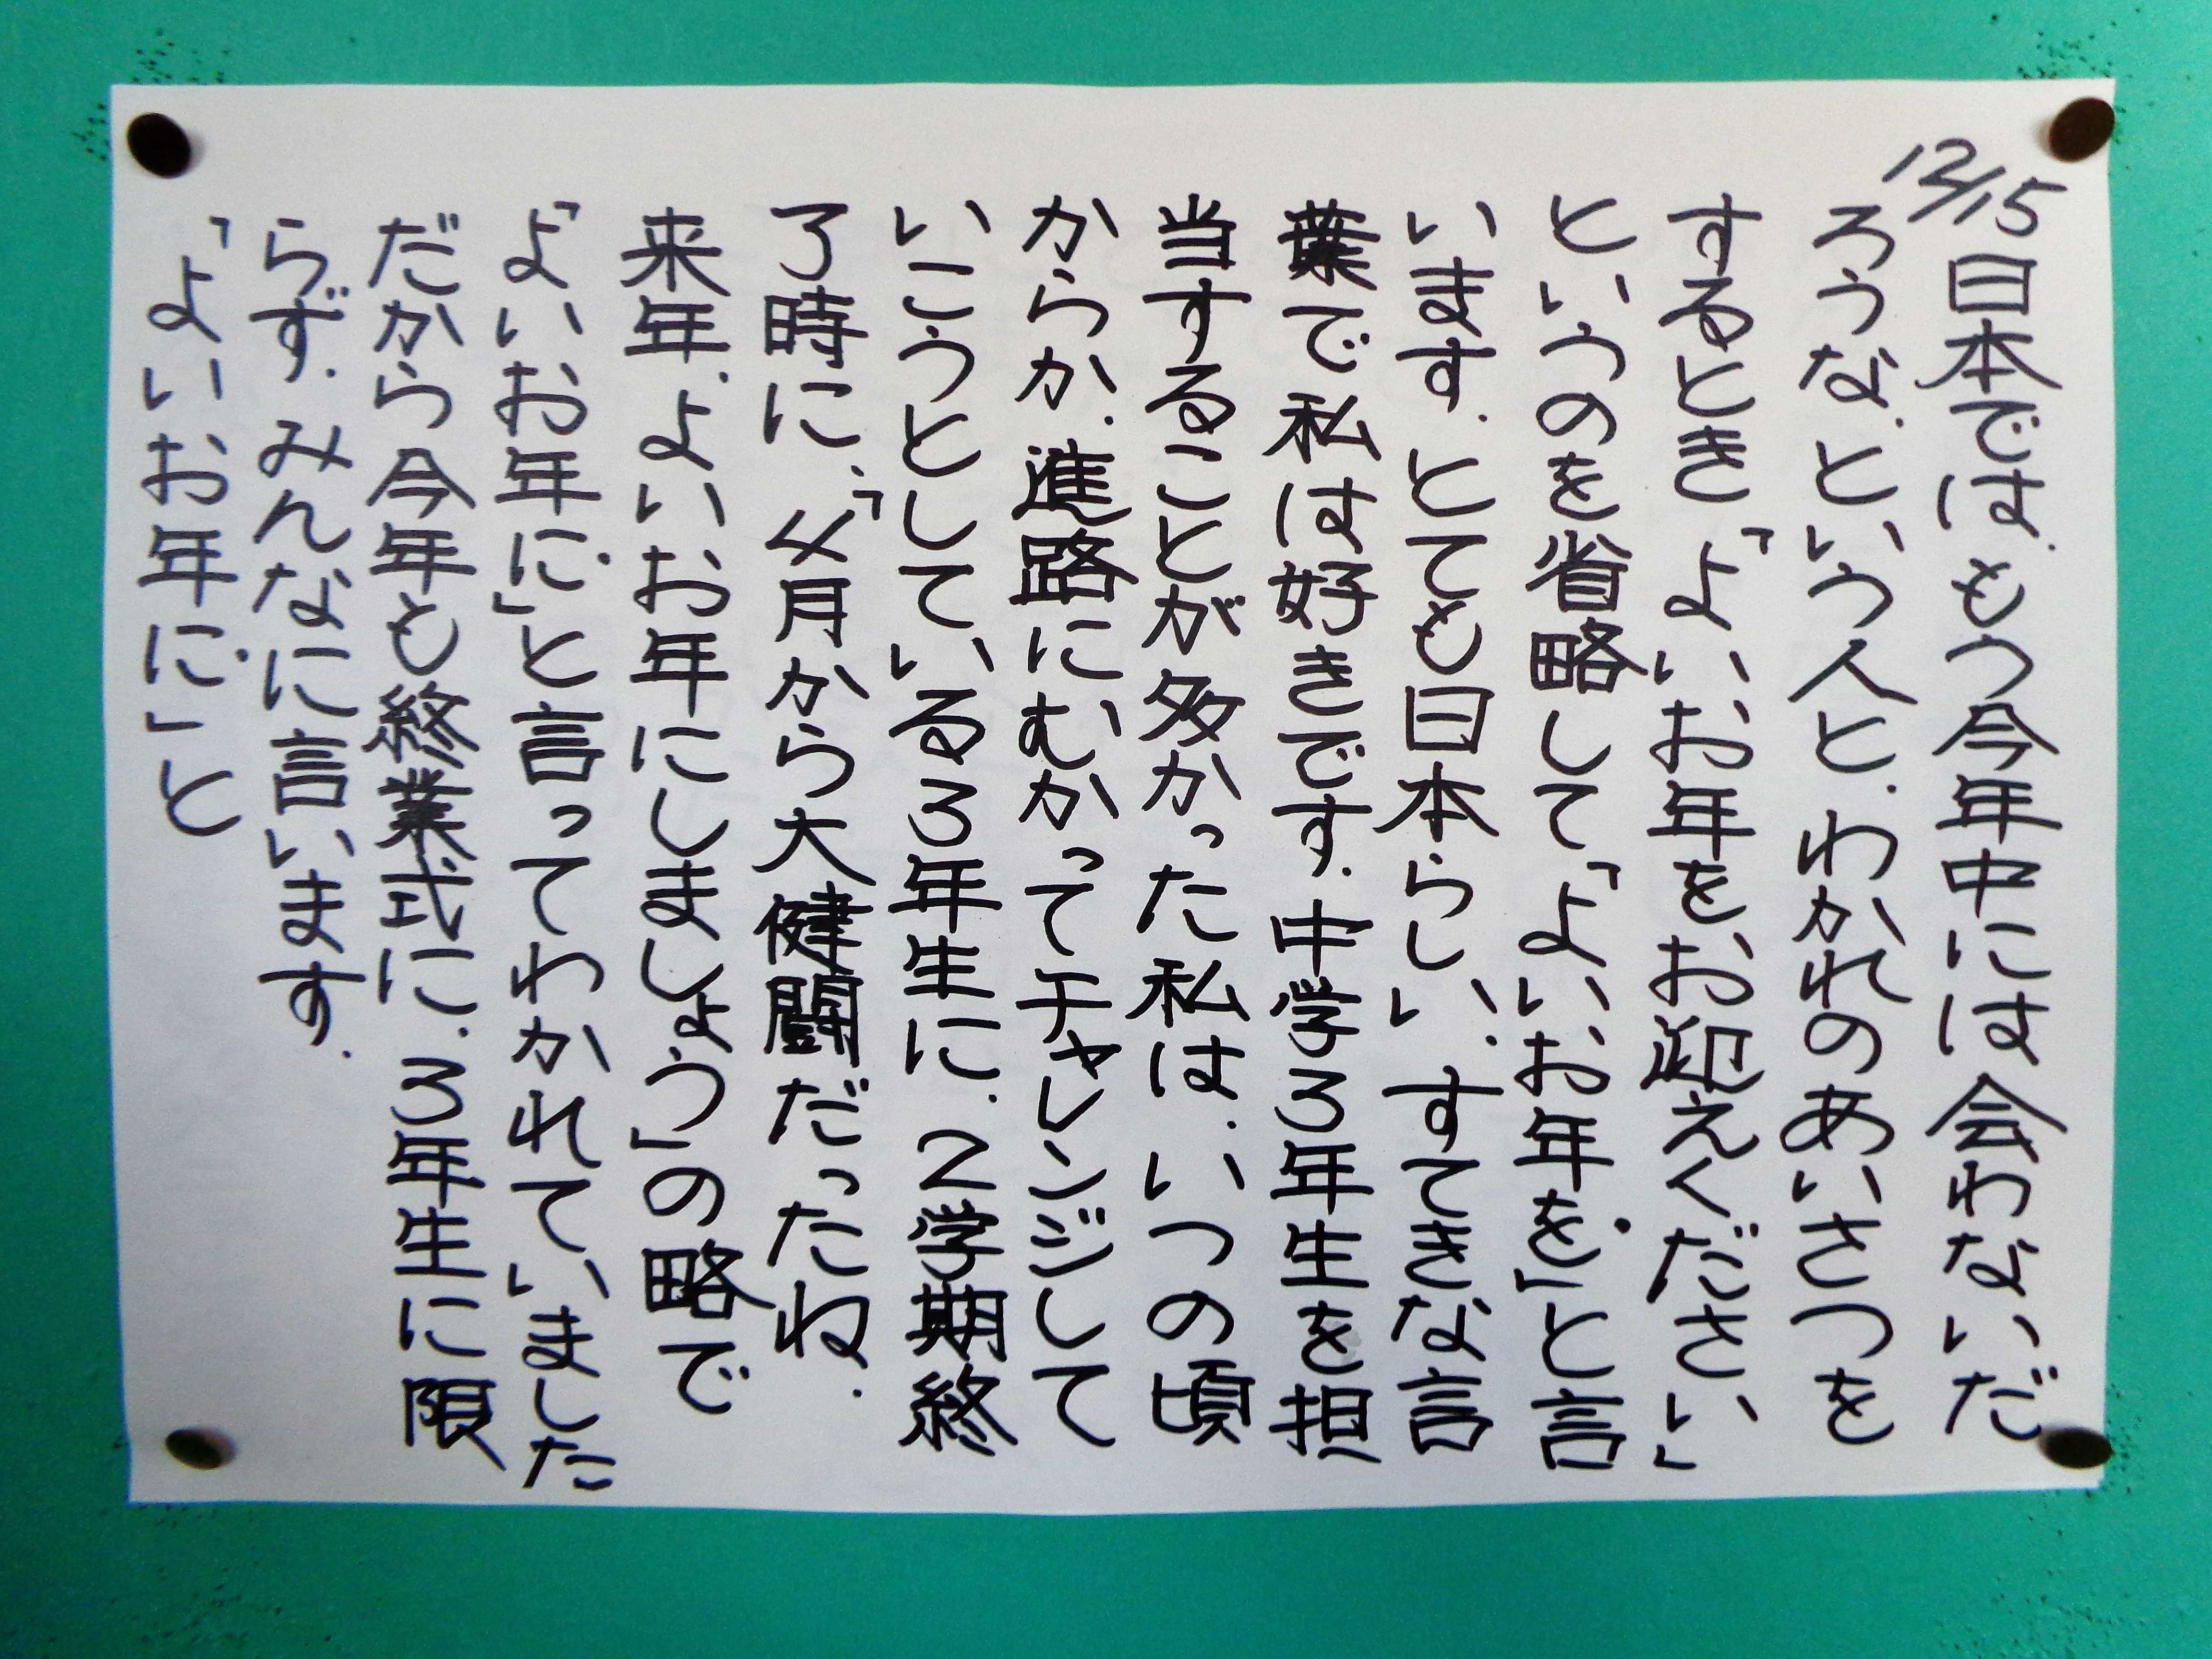 12/15
日本では、もう今年中には会わないだ
ろうな、という人と、わかれのあいさつを
するとき「よいお年を、お迎えください」
というのを省略して「よいお年を」と言
います。とても日本らしい、すてきな言
葉で私は好きです。中学3年生を担
当することが多かった私は、いつの頃
からか、進路にむかってチャレンジして
いこうとしている3年生に、2学期終
了時に、「4月から大健闘だったね。
来年、よいお年にしましょう」の略で
「よいお年に」と言ってわかれていました
だから今年も終業式に、3年生に限
らず、みんなに言います。
「よいお年に」と